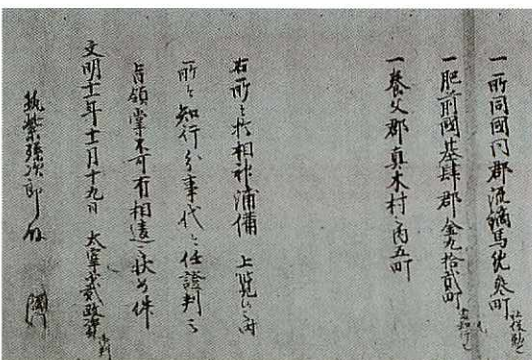 一所同國同郡流鏑馬免参町
一肥前國基肄郡金丸拾貳町
當知行
一養父郡真木村之内五町
右所々於相神浦備上覧之対
所々知行分事代々任證判之
旨領掌不可有相違之状如件
文明十一年十一月十九日 太宰貳政資
筑紫孫次郎殿